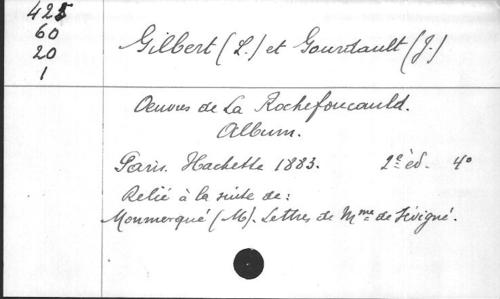 425
60
20
1
Gilbert (L.) et Gourdault (J.)
Oeuvres de La Rochefoucauld.
Album.
Paris. Hachette 1883. 2e éd. 4o
Relié à la suite de:
Monmerqué (M). Lettres de Mme de Sévigné.